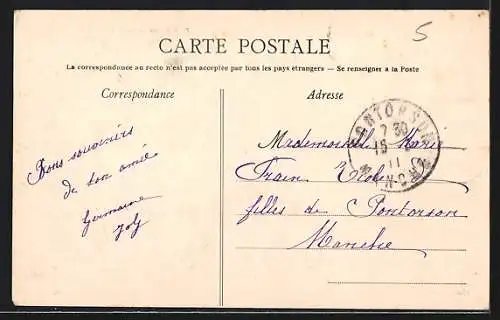 5
CARTE POSTALE
La correspondance au recto n'est pas acceptée par tous les pays étrangers — Se renseigner à la Poste
Correspondance
Adresse
Bons souvenirs
de ton amie
Germaine
Joly
Mademoiselle Marie
École
filles de Pontorson
Manche
PONTORSON
7 30
15
11
MANCHE